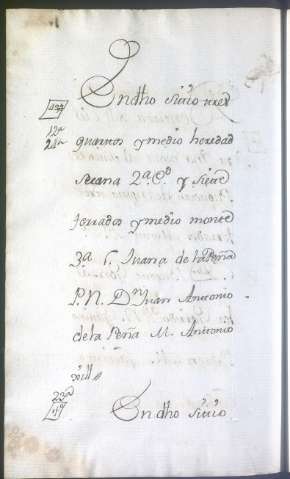 En dho sitio tres
quartos y medio heredad
secana 2ª. Cd. y siete
ferrados y medio monte
3ª. C. Juana de la Peña
P. N. Dn. Juan Antonio
de la Peña M. Antonio
En dho sitio